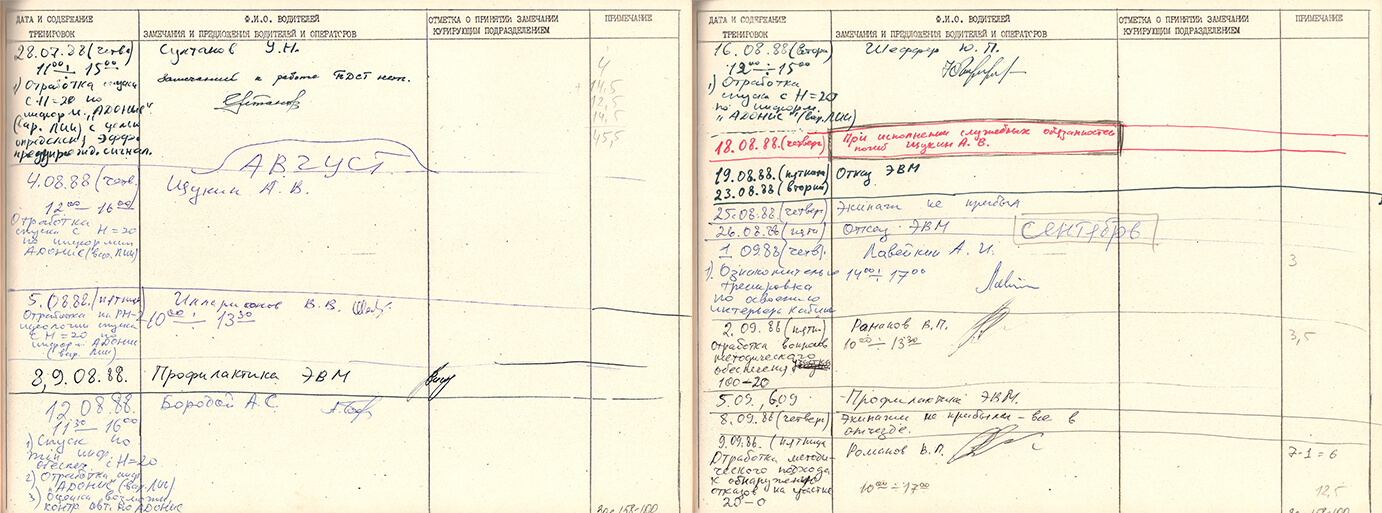 ДАТА И СОДЕРЖАНИЕ
ТРЕНИРОВОК
Ф.И.О. ВОДИТЕЛЕЙ
ЗАМЕЧАНИЯ И ПРЕДЛОЖЕНИЯ ВОДИТЕЛЕЙ И ОПЕРАТОРОВ
ОТМЕТКА О ПРИНЯТИИ ЗАМЕЧАНИИ
КУРИРУЮЩИМ ПОДРАЗДЕЛЕНИЕМ
ПРИМЕЧАНИЕ
28.07.88 (четв)
11⁰⁰ ÷ 15⁰⁰
1) Отработка спуска
с H=20 по
информ. "АДОНИС"
(вар. ЛИИ) с целью
определен. эффе
предупрежд. сигнал.
Султанов У.Н.
Замечаний к работе ПДСТ нет.
4
+ 14,5
12,5
14,5
45,5
АВГУСТ
4.08.88 (четв.)
12⁰⁰ - 16⁰⁰
Отработка
спуска с H=20
по информации
АДОНИС (вар. ЛИИ)
Щукин А.В.
5.08.88. (пятница
Отработка на РМ-2
идеологии спуска
с H=20 по
информ. АДОНИС
(вар. ЛИИ)
Илларионов В.В.
10⁰⁰ ÷ 13³⁰
8,9.08.88.
Профилактика ЭВМ
12.08.88.
11³⁰ - 16⁰⁰
1) Спуск по
инф.
обеспеч. с H=20
2) Отработка инф.
"АДОНИС" (вар. ЛИИ)
3) Оценка возможн.
контр. авт. по АДОНИС
Бородай А.С.
ДАТА И СОДЕРЖАНИЕ
ТРЕНИРОВОК
Ф.И.О. ВОДИТЕЛЕЙ
ЗАМЕЧАНИЯ И ПРЕДЛОЖЕНИЯ ВОДИТЕЛЕЙ И ОПЕРАТОРОВ
ОТМЕТКА О ПРИНЯТИИ ЗАМЕЧАНИИ
КУРИРУЮЩИМ ПОДРАЗДЕЛЕНИЕМ
ПРИМЕЧАНИЕ
16.08.88 (втор)
12⁰⁰ ÷ 15⁰⁰
1) Отработка
спуска с H=20
по информ.
"АДОНИС" (вар. ЛИИ)
Шеффер Ю.П.
18.08.88. (четверг)
При исполнении служебных обязанностей
погиб Щукин А.В.
19.08.88. (пятница)
23.08.88 (вторник)
Отказ ЭВМ
25.08.88 (четверг)
Экипажи не прибыл
26.08.88 (пятн)
Отказ ЭВМ
СЕНТЯБРЬ
1.09.88 (четв.)
1). Ознакомительн.
тренировка
по освоению
интерьера кабины
Лавейкин А.И.
14⁰⁰ ÷ 17⁰⁰
3
2.09.88 (пятн.
Отработка вопросов
методического
обеспечения участка
100-20
Романов В.П.
10⁰⁰ ÷ 13³⁰
3,5
5.09, 6.09
Профилактика ЭВМ.
8.09.88 (четверг)
Экипажи не прибыли - все в
отъезде.
9.09.88. (пятница
Отработка методи-
ческого подхода
к обнаружению
отказов на участке
20-0
Романов В.П.
10⁰⁰ ÷ 17⁰⁰
7-1=6
12,5